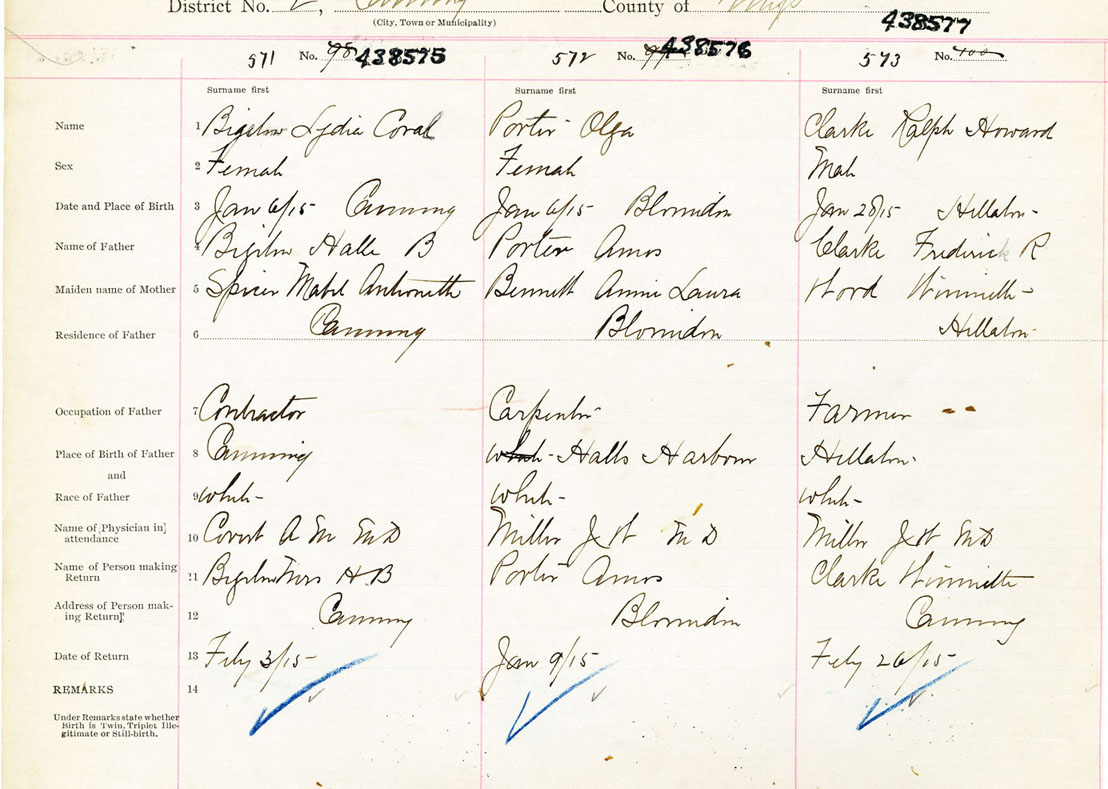 District No. 2, Canning County of Kings
(City, Town or Municipality)
438577
571 No. 98 438575 572 No. 438576 573 No. 100
Surname first Surname first Surname first
Name 1 Bigelow Lydia Coral Porter Olga Clarke Ralph Howard
Sex 2 Female Female Male
Date and Place of Birth 3 Jan 6/15 Canning Jan 6/15 Blomidon Jan 28/15 Hillaton
Name of Father 4 Bigelow Halle B Porter Amos Clarke Frederick R
Maiden name of Mother 5 Spicer Mabel Antionette Bennett Annie Laura Winnette
Residence of Father 6 Canning Blomidon Hillaton
Occupation of Father 7 Contractor Carpenter Farmer
Place of Birth of Father 8 Canning white Halls Harbour Hillaton
and
Race of Father 9 white white white
Name of [Physician in] attendance 10 Covert A M M D Miller J W M D Miller J W M D
Name of Person making Return 11 Bigelow Mrs H B Porter Amos Clarke Winnette
Address of Person making Return] 12 Canning Blomidon Canning
Date of Return 13 Feby 3/15 Jan 9/15 Feby 26/15
REMARKS 14
Under Remarks state whether
Birth is Twin, Triplet Ille-
gitimate or Still-birth.